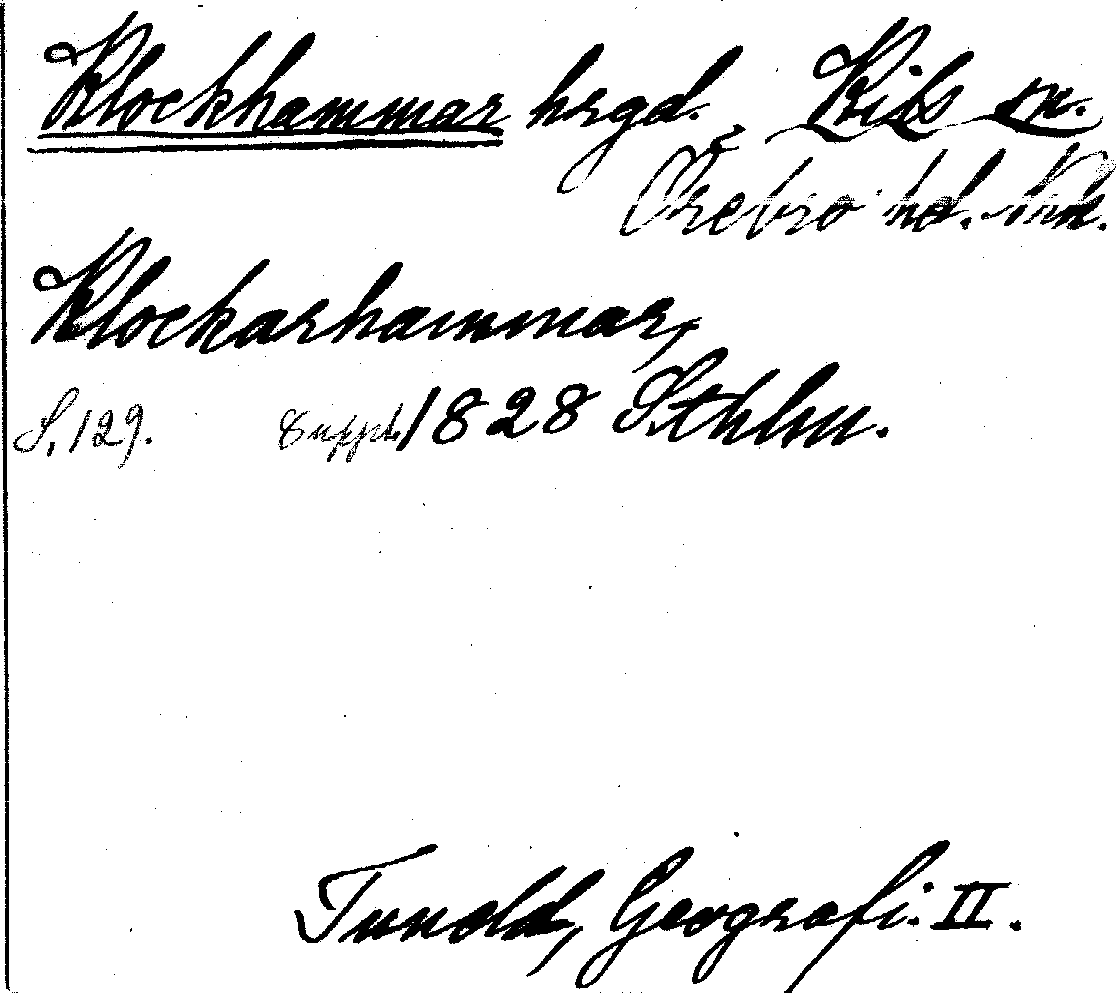 Klockhammar hrgd. Kils sn.
Örebro hd. Nrk.
Klockarhammar,
S. 129. Suppl. 1828 Sthlm.
Tunold, Geografi. II.